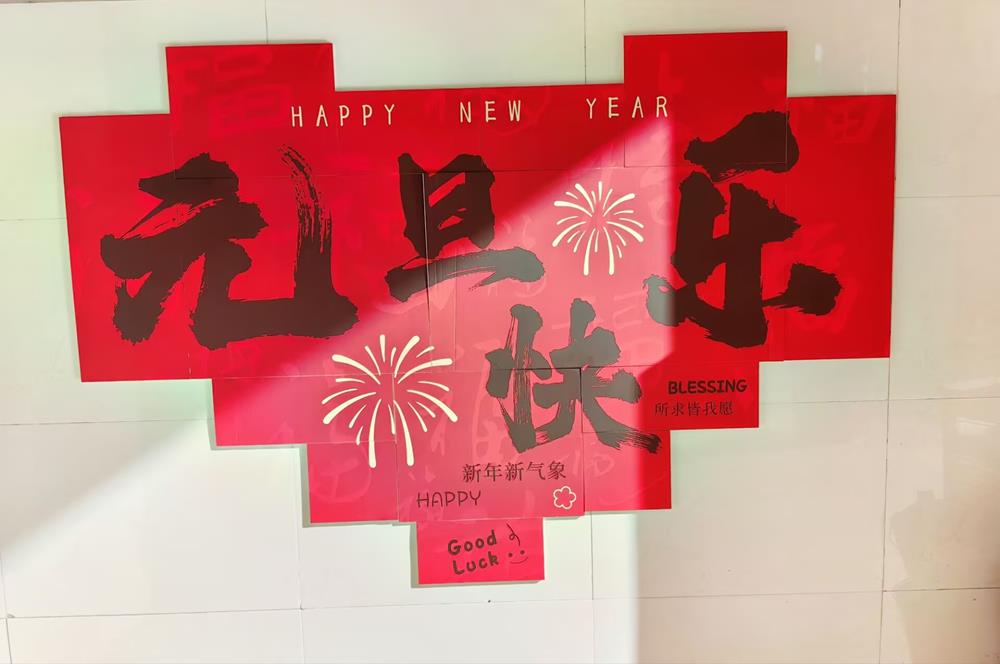 HAPPY NEW YEAR
元旦快乐
BLESSING
所求皆我愿
新年新气象
HAPPY
Good
Luck